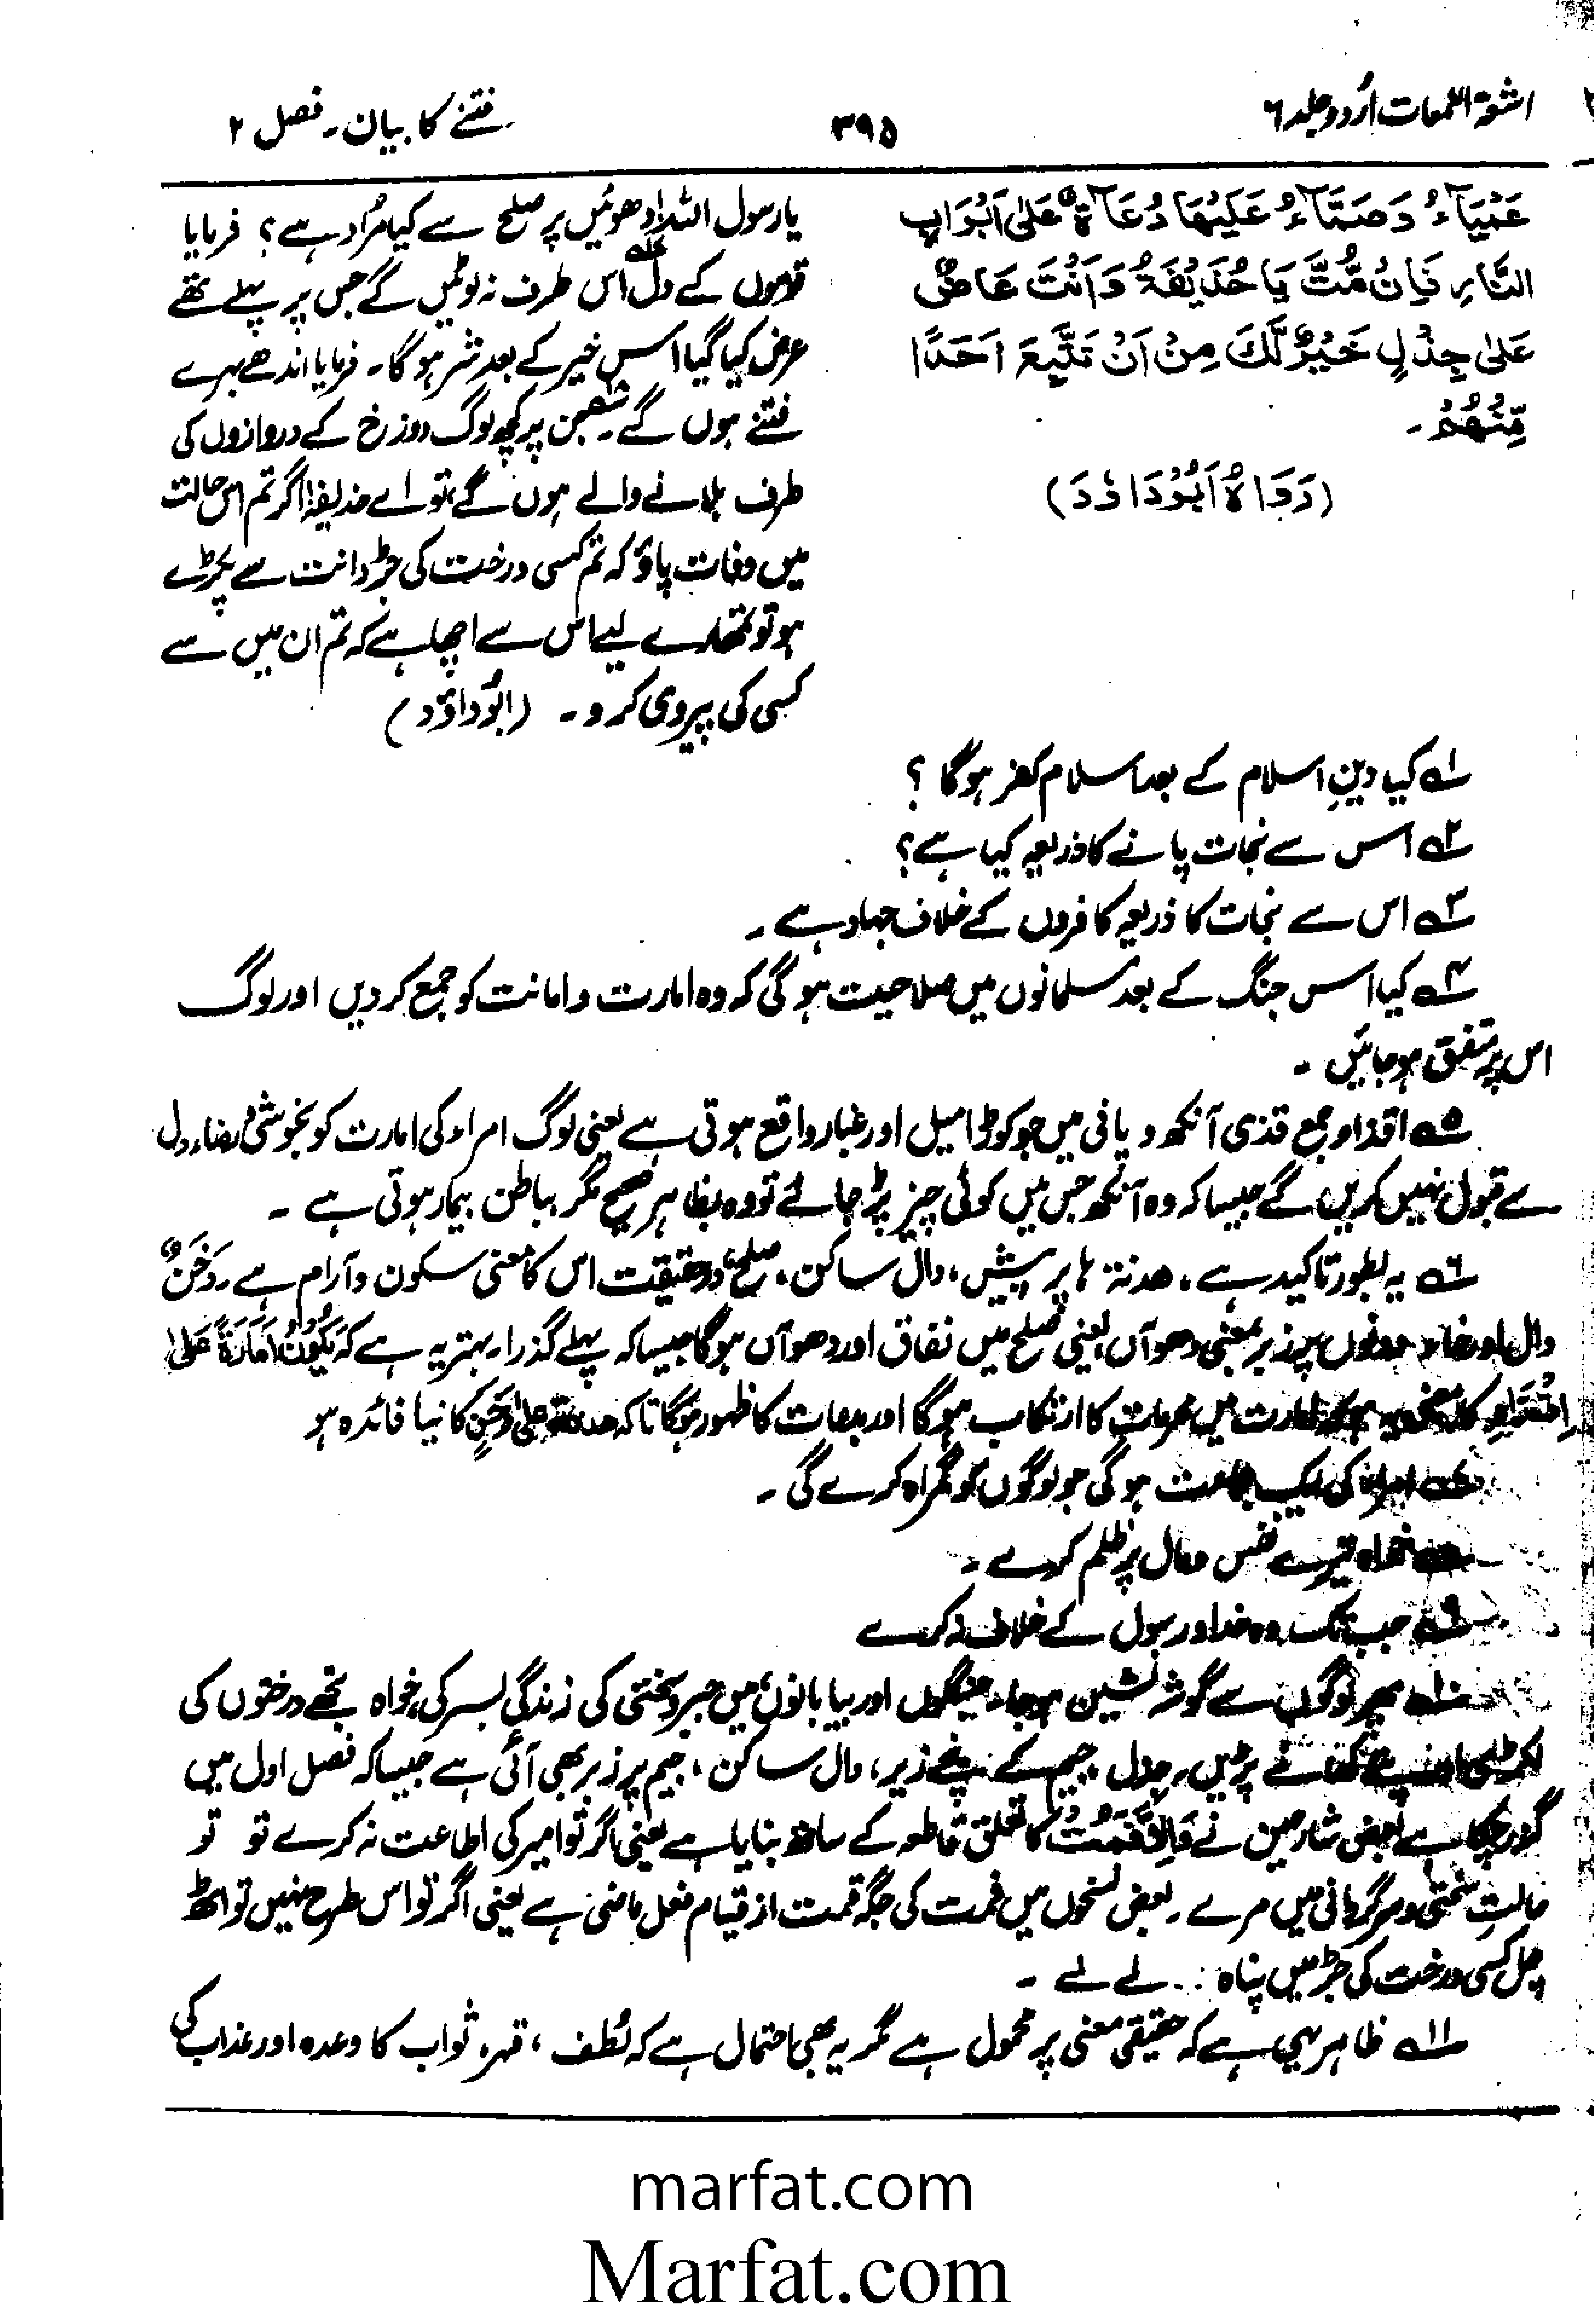 اشعۃ اللمعات اُردو جلد ۶
۳۹۵
فتنے کا بیان۔ فصل ۲
عَمْيَآءُ وَصَمَّآءُ عَلَيْهَا دُعَاةٌ عَلٰى اَبْوَابِ
النَّارِ فَاِنْ مُّتَّ يَا حُذَيْفَةُ وَاَنْتَ عَاضٌّ
عَلٰى جِذْلٍ خَيْرٌ لَّكَ مِنْ اَنْ تَتَّبِعَ اَحَدًا
مِّنْهُمْ۔
(رَوَاهُ اَبُوْدَاوٗدَ)
یا رسول اللہ! دھوئیں پر صلح سے کیا مُراد ہے؟ فرمایا
قوموں کے دل اس طرف نہ لوٹیں گے جس پر پہلے تھے
عرض کیا گیا اس خیر کے بعد شر ہوگا۔ فرمایا اندھے بہرے
فتنے ہوں گے۔ جن پر کچھ لوگ دوزخ کے دروازوں کی
طرف بلانے والے ہوں گے، تو اے حذیفہ! اگر تم اس حالت
میں وفات پاؤ کہ تم کسی درخت کی جڑ دانت سے پکڑے
ہو تو تمھارے لیے اس سے اچھا ہے کہ تم ان میں سے
کسی کی پیروی کرو۔ (ابُوداؤد)
۱؎ کیا دینِ اسلام کے بعد اسلام کفر ہوگا ؟
۲؎ اس سے نجات پانے کا ذریعہ کیا ہے؟
۳؎ اس سے نجات کا ذریعہ کافروں کے خلاف جہاد ہے۔
۴؎ کیا اس جنگ کے بعد مسلمانوں میں صلاحیت ہوگی کہ وہ امارت و امانت کو جمع کر دیں اور لوگ
اس پر متفق ہو جائیں ۔
۵؎ اقذاء جمع قذی آنکھ و پانی میں جو کوڑا میل اور غبار واقع ہوتی ہے یعنی لوگ امراء کی امارت کو بخوشی و رضاء دل
سے قبول نہیں کریں گے جیسا کہ وہ آنکھ جس میں کوئی چیز پڑ جائے تو وہ بظاہر صحیح مگر بباطن بیمار ہوتی ہے ۔
۶؎ یہ بطور تاکید ہے، ھدنۃ ہا پر پیش، دال ساکن، صلح، درحقیقت اس کا معنی سکون و آرام ہے۔ دَخَنٌ
دال اور خاء دونوں پر زبر بمعنی دھوآں یعنی صلح میں نفاق اور دھوآں ہوگا جیسا کہ پہلے گذرا۔ بہتر یہ ہے کہ یَکُوْنُ اَمَارَۃٌ عَلٰی
کا معنی یہ ہو کہ امارت میں محرمات کا ارتکاب ہوگا اور بدعات کا ظہور ہوگا تاکہ ھدنۃ علیٰ دَخَنٍ کا نیا فائدہ ہو
امراء کی ایک جماعت ہوگی جو لوگوں کو گمراہ کرے گی ۔
خواہ تیرے نفس و مال پر ظلم کرے ۔
۹؎ جب تک وہ خدا و رسول کے خلاف نہ کرے
۱۰؎ پھر لوگوں سے گوشہ نشین ہو جا، جنگلوں اور بیابانوں میں صبر و سختی کی زندگی بسر کر، خواہ تجھے درختوں کی
لکڑی اور پتے کھانے پڑیں۔ جذل جیم کے نیچے زیر، ذال ساکن، جیم پر زبر بھی آئی ہے جیسا کہ فصل اول میں
گذر چکا ہے بعض شارحین نے فَاِلَّا فَمُتْ کا تعلق فاطعہ کے ساتھ بنایا ہے یعنی اگر تو امیر کی اطاعت نہ کرے تو تو
حالتِ سختی و سرگردانی میں مرے۔ بعض نسخوں میں فمت کی جگہ قمت از قیام فعل ماضی ہے یعنی اگر تو اس طرح نہیں تو اٹھ
چل کسی درخت کی جڑ میں پناہ لے لے ۔
۱۱؎ ظاہر یہی ہے کہ حقیقی معنی پر محمول ہے مگر یہ بھی احتمال ہے کہ لُطف، قہر، ثواب کا وعدہ اور عذاب کی
marfat.com
Marfat.com